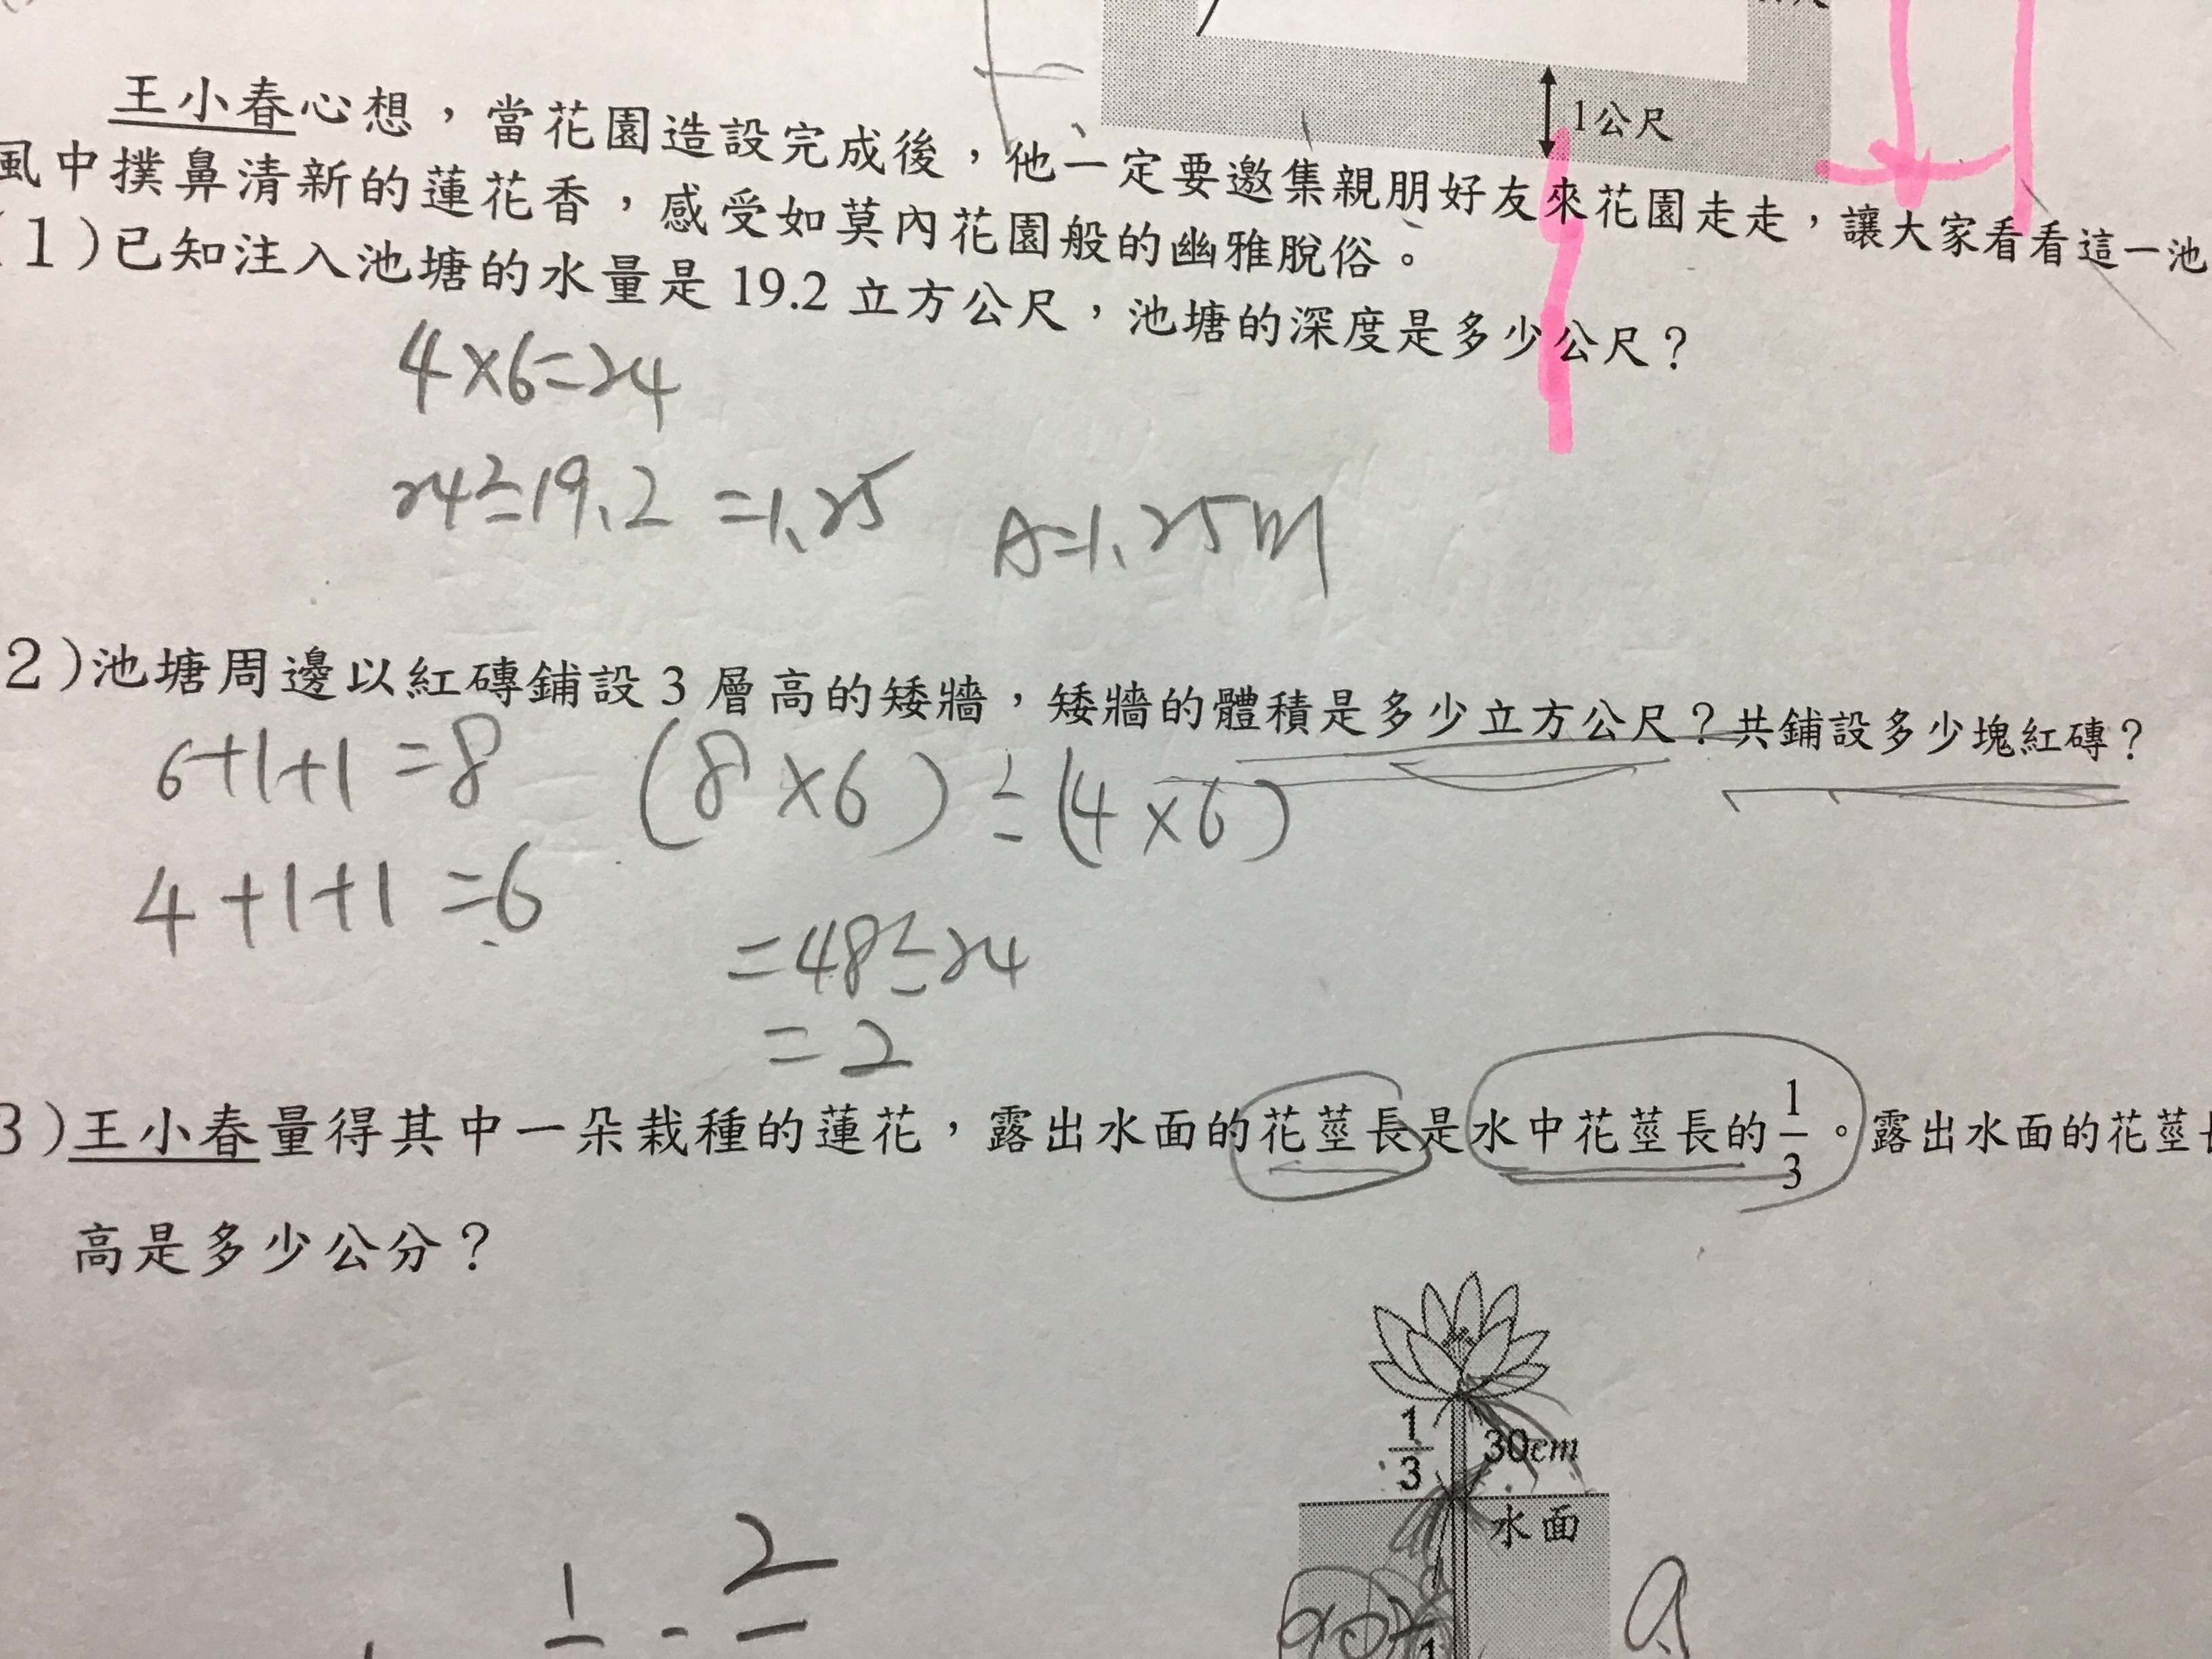 1公尺
王小春心想，當花園造設完成後，他一定要邀集親朋好友來花園走走，讓大家看看這一池
風中撲鼻清新的蓮花香，感受如莫內花園般的幽雅脫俗。
(1)已知注入池塘的水量是19.2立方公尺，池塘的深度是多少公尺？
4×6=24
24÷19.2=1.25 A=1.25m
2)池塘周邊以紅磚鋪設3層高的矮牆，矮牆的體積是多少立方公尺？共鋪設多少塊紅磚？
6+1+1=8 (8×6)÷(4×6)
4+1+1=6
=48÷24
=2
3)王小春量得其中一朵栽種的蓮花，露出水面的花莖長是水中花莖長的1/3。露出水面的花莖
高是多少公分？
1/3 30cm
水面
1 - 2
1